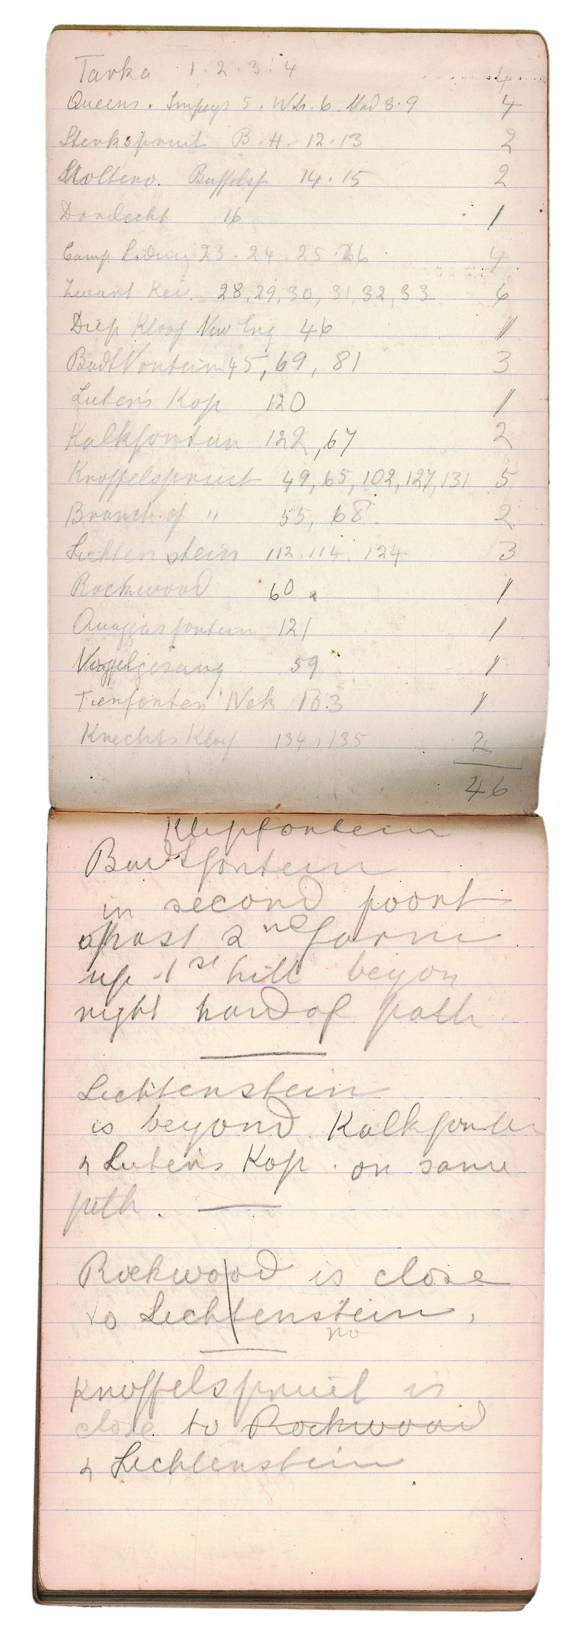 Tarka 1. 2. 3. 4 4
Queens. Impeys 5. Wh. 6. Mad 8. 9 4
Sterkspruit B. H. 12. 13 2
Molteno. Buffelsf 14. 15 2
Dordecht 16 1
Camp Siding 23. 24. 25. 26 4
Zwart Kei 28, 29, 30, 31, 32, 33 6
Diep Kloof New Eng 46 1
Badtfontein 45, 69, 81 3
Luten's Kop 120 1
Kalkfontein 122, 67 2
Knoffelspruit 49, 65, 102, 127, 131 5
Branch of " 55, 68 2
Lichtenstein 112. 114. 124 3
Rockwood 60 1
Quaggasfontein 121 1
Vogelgesang 59 1
Tienfontein Nek 103 1
Knechts Kloof 134, 135 2
46
Klipfontein
Badtfontein
in second poort
past 2nd farm
up 1st hill beyon
right hand of path
Lichtenstein
is beyond Kalkfontein
& Luten's Kop on same
path.
Rockwood is close
to Lichtenstein,
no
Knoffelspruit is
close to Rockwood
& Lichtenstein